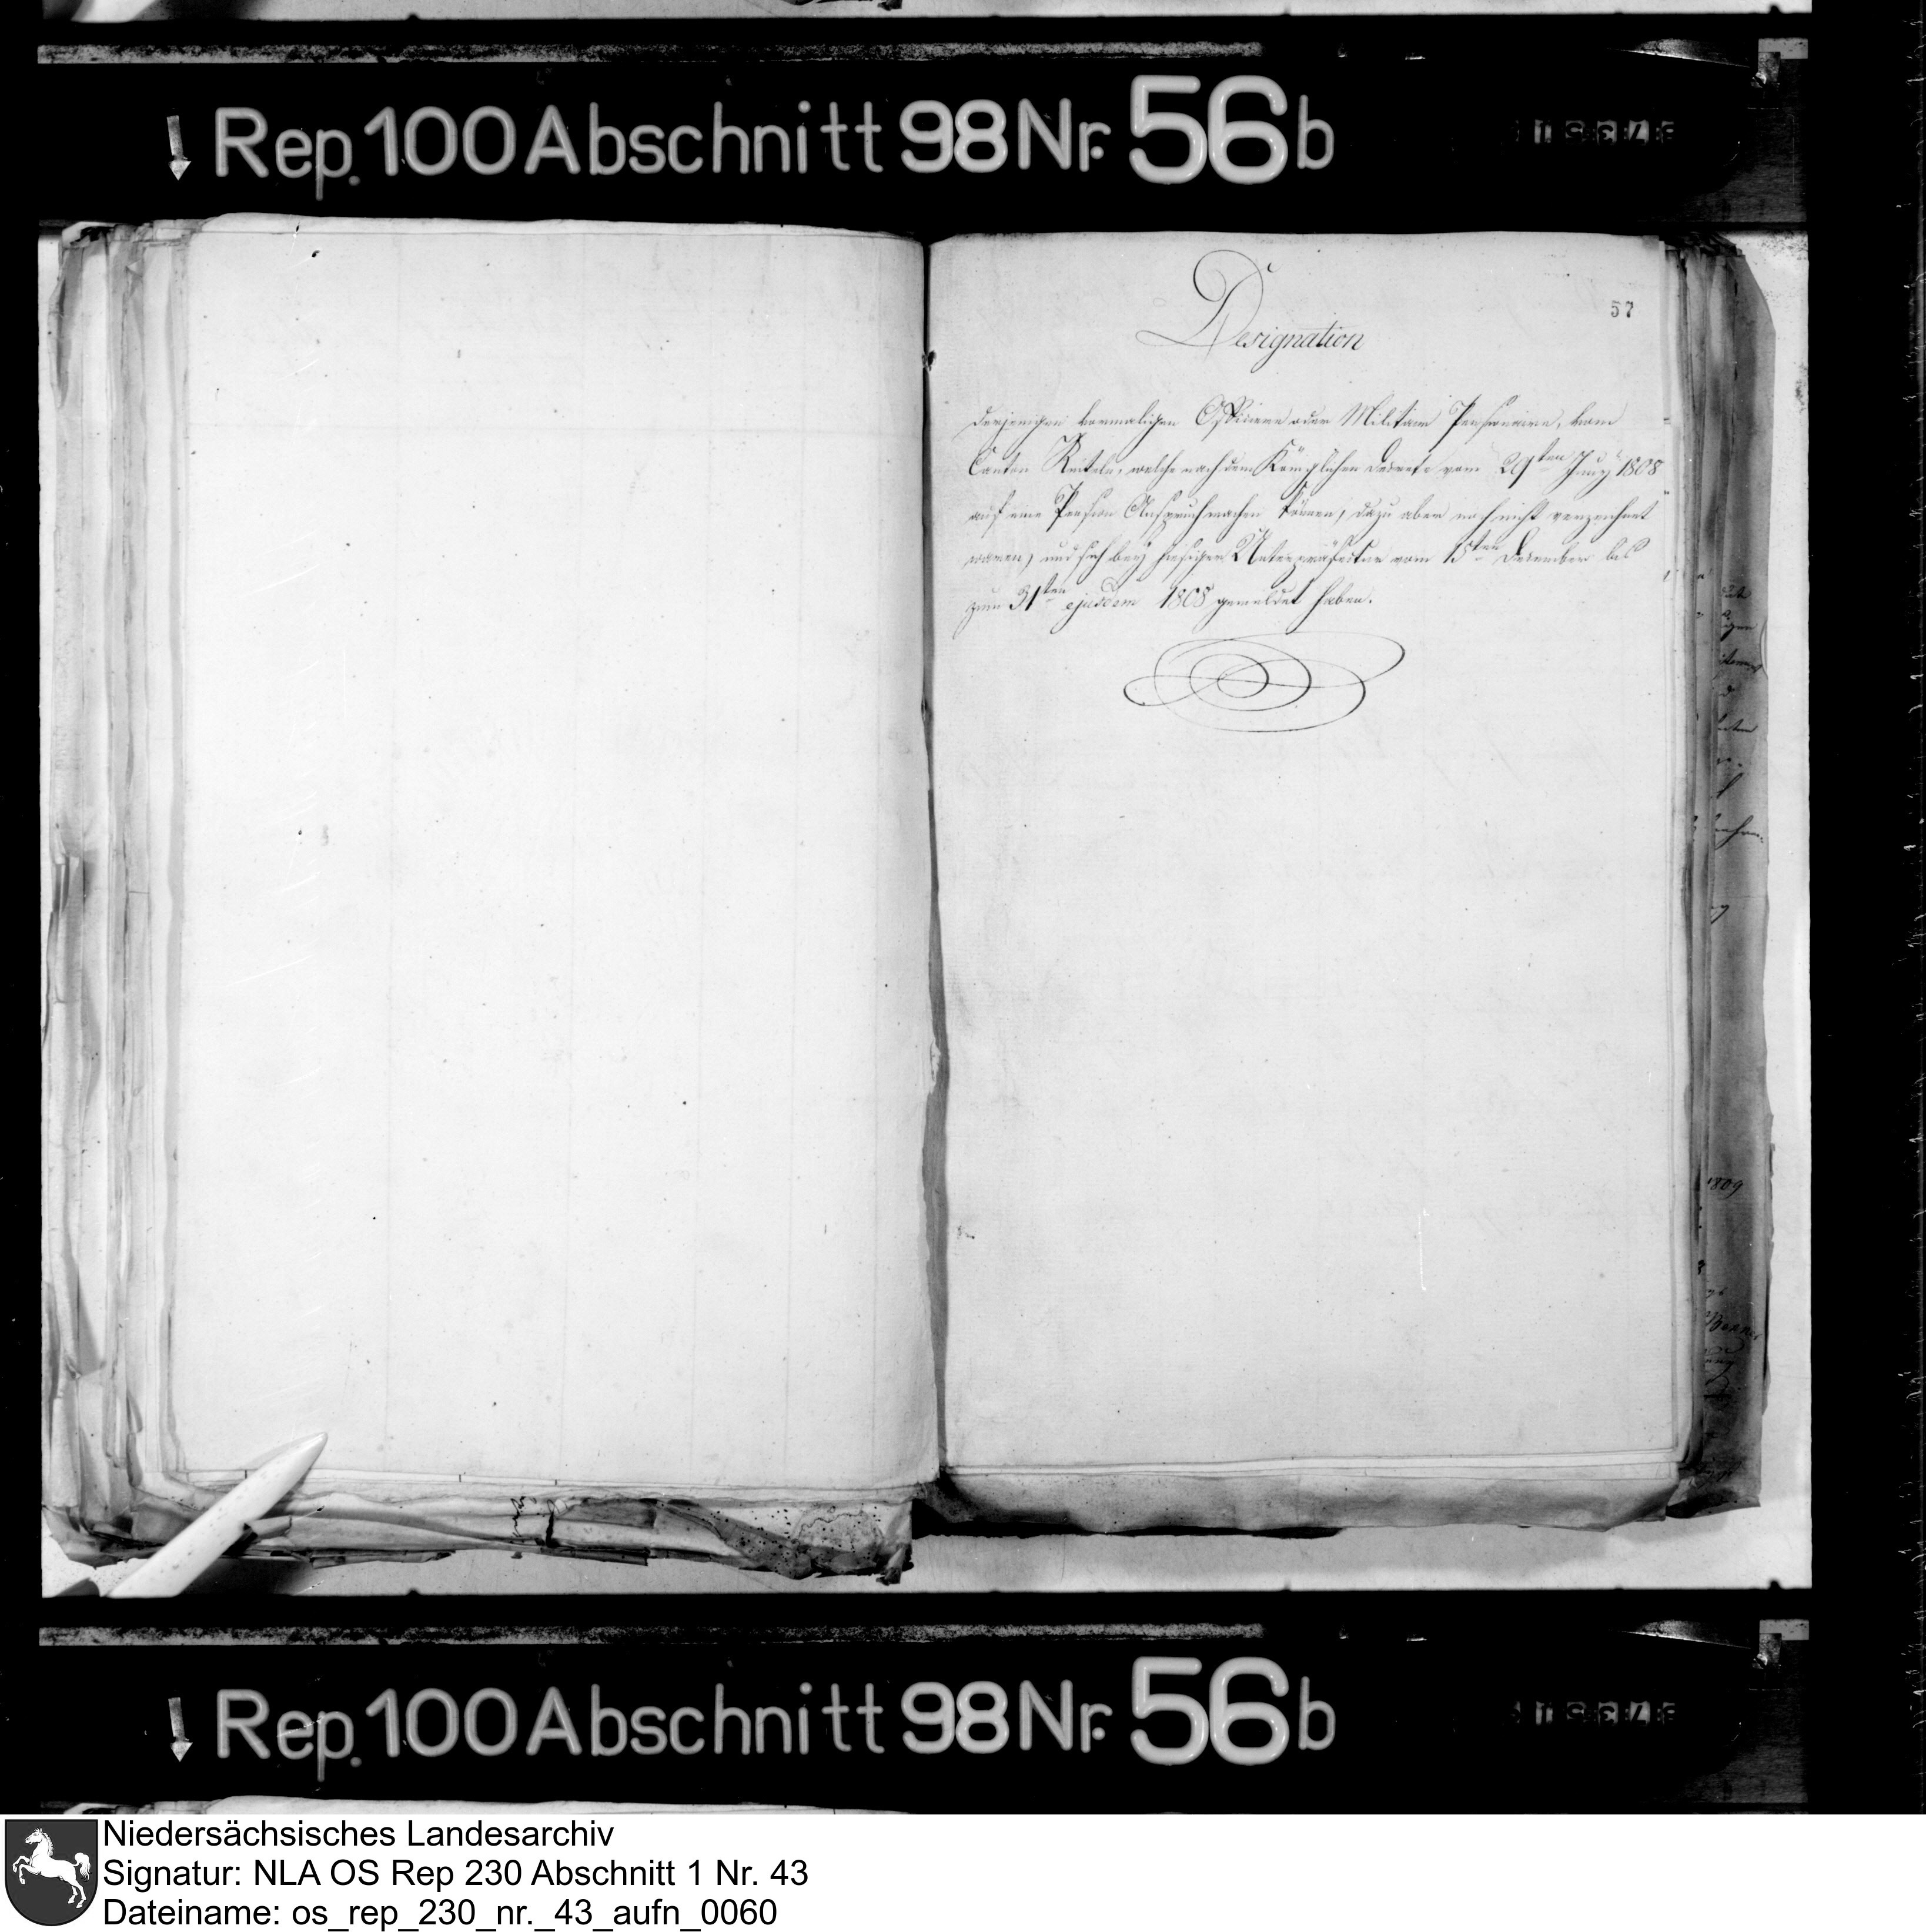 Rep. 100 Abschnitt 98 Nr. 56b
57
Designation
derjenigen vormaligen Officiere oder Militair Pensionaire, vom
Canton Rinteln, welche nach dem Königlichen Decrete vom 29ten Juny 1808
auf eine Pension Anspruch machen können, dazu aber noch nicht verzeichnet
waren, und sich bey hiesiger Unterpräfectur vom 15ten December bis
zum 31ten ejusdem 1808 gemeldet haben.
1809
Rep. 100 Abschnitt 98 Nr. 56b
Niedersächsisches Landesarchiv
Signatur: NLA OS Rep 230 Abschnitt 1 Nr. 43
Dateiname: os_rep_230_nr._43_aufn_0060